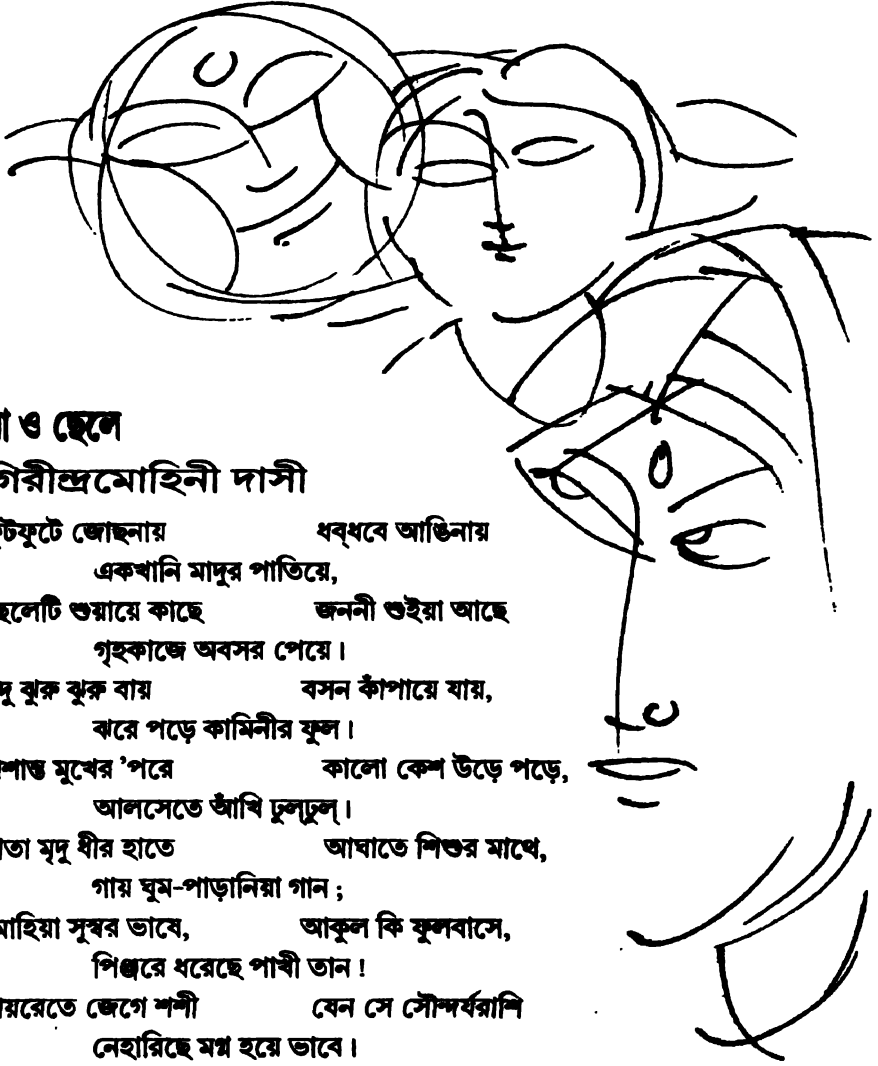 ও ছেলে
গিরীন্দ্রমোহিনী দাসী
ফুটফুটে জোছনায় ধব্‌ধবে আঙিনায়
একখানি মাদুর পাতিয়ে,
ছেলেটি শুয়ায়ে কাছে জননী শুইয়া আছে
গৃহকাজে অবসর পেয়ে।
মৃদু ঝুরু ঝুরু বায় বসন কাঁপায়ে যায়,
ঝরে পড়ে কামিনীর ফুল।
প্রশান্ত মুখের ’পরে কালো কেশ উড়ে পড়ে,
আলসেতে আঁখি ঢুল্‌ঢুল্‌।
মাতা মৃদু ধীর হাতে আঘাতে শিশুর মাথে,
গায় ঘুম-পাড়ানিয়া গান ;
মোহিয়া সুস্বর ভাষে, আকুল কি ফুলবাসে,
পিঞ্জরে ধরেছে পাখী তান !
জেগে শশী যেন সে সৌন্দর্যরাশি
নেহারিছে মগ্ন হয়ে ভাবে।